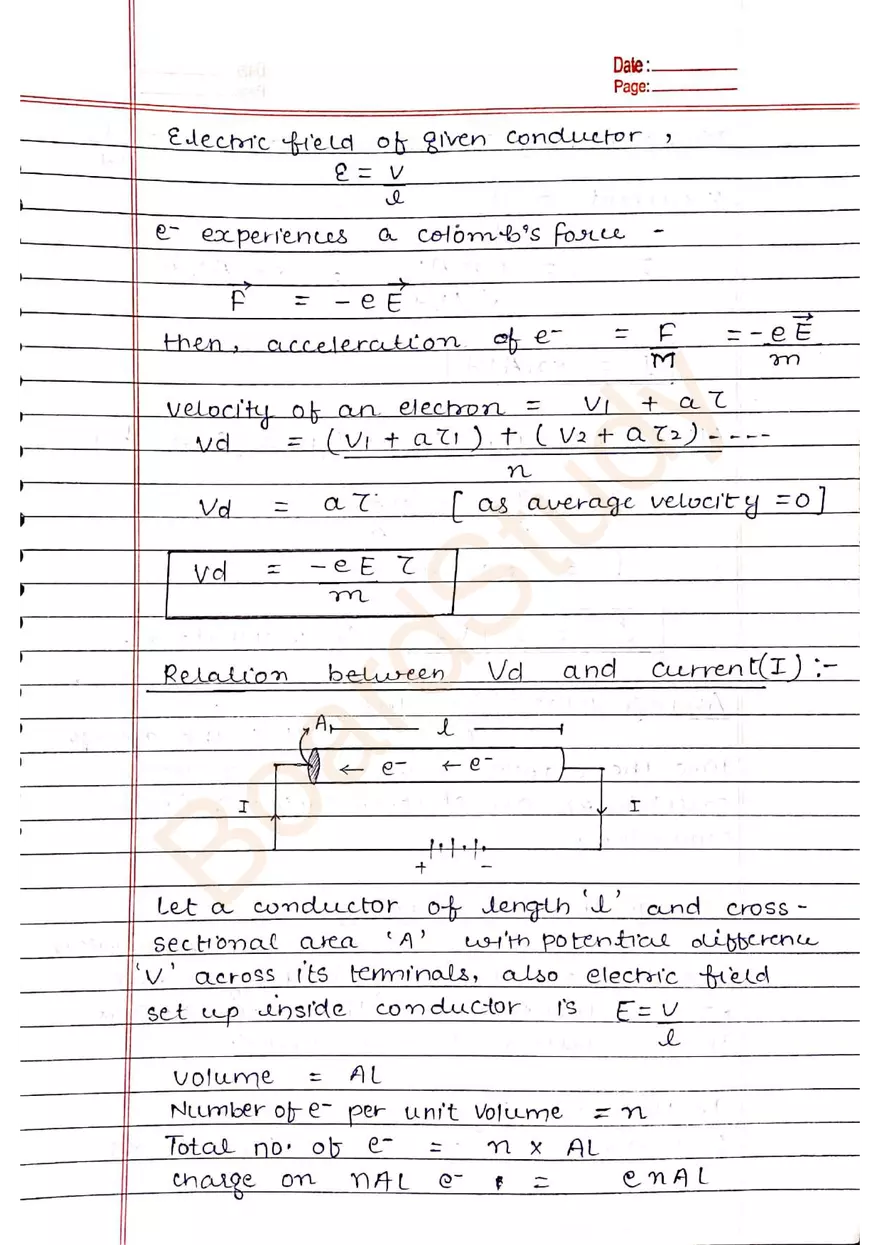 Date:
Page:
Electric field of given conductor,
ε = V
l
e- experiences a colomb's force -
F⃗ = - e E⃗
then, acceleration of e- = F = - e E⃗
M m
velocity of an electron = V1 + a τ
Vd = (V1 + a τ1) + (V2 + a τ2) - ---
n
Vd = a τ [as average velocity = 0]
Vd = - e E τ
m
Relation between Vd and current(I) :-
A l
← e- ← e-
I I
+ -
Let a conductor of length 'l' and cross-
sectional area 'A' with potential difference
'V' across its terminals, also electric field
set up inside conductor is E = V
l
volume = AL
Number of e- per unit volume = n
Total no. of e- = n x AL
charge on nAL e- = enAL
BoardStudy